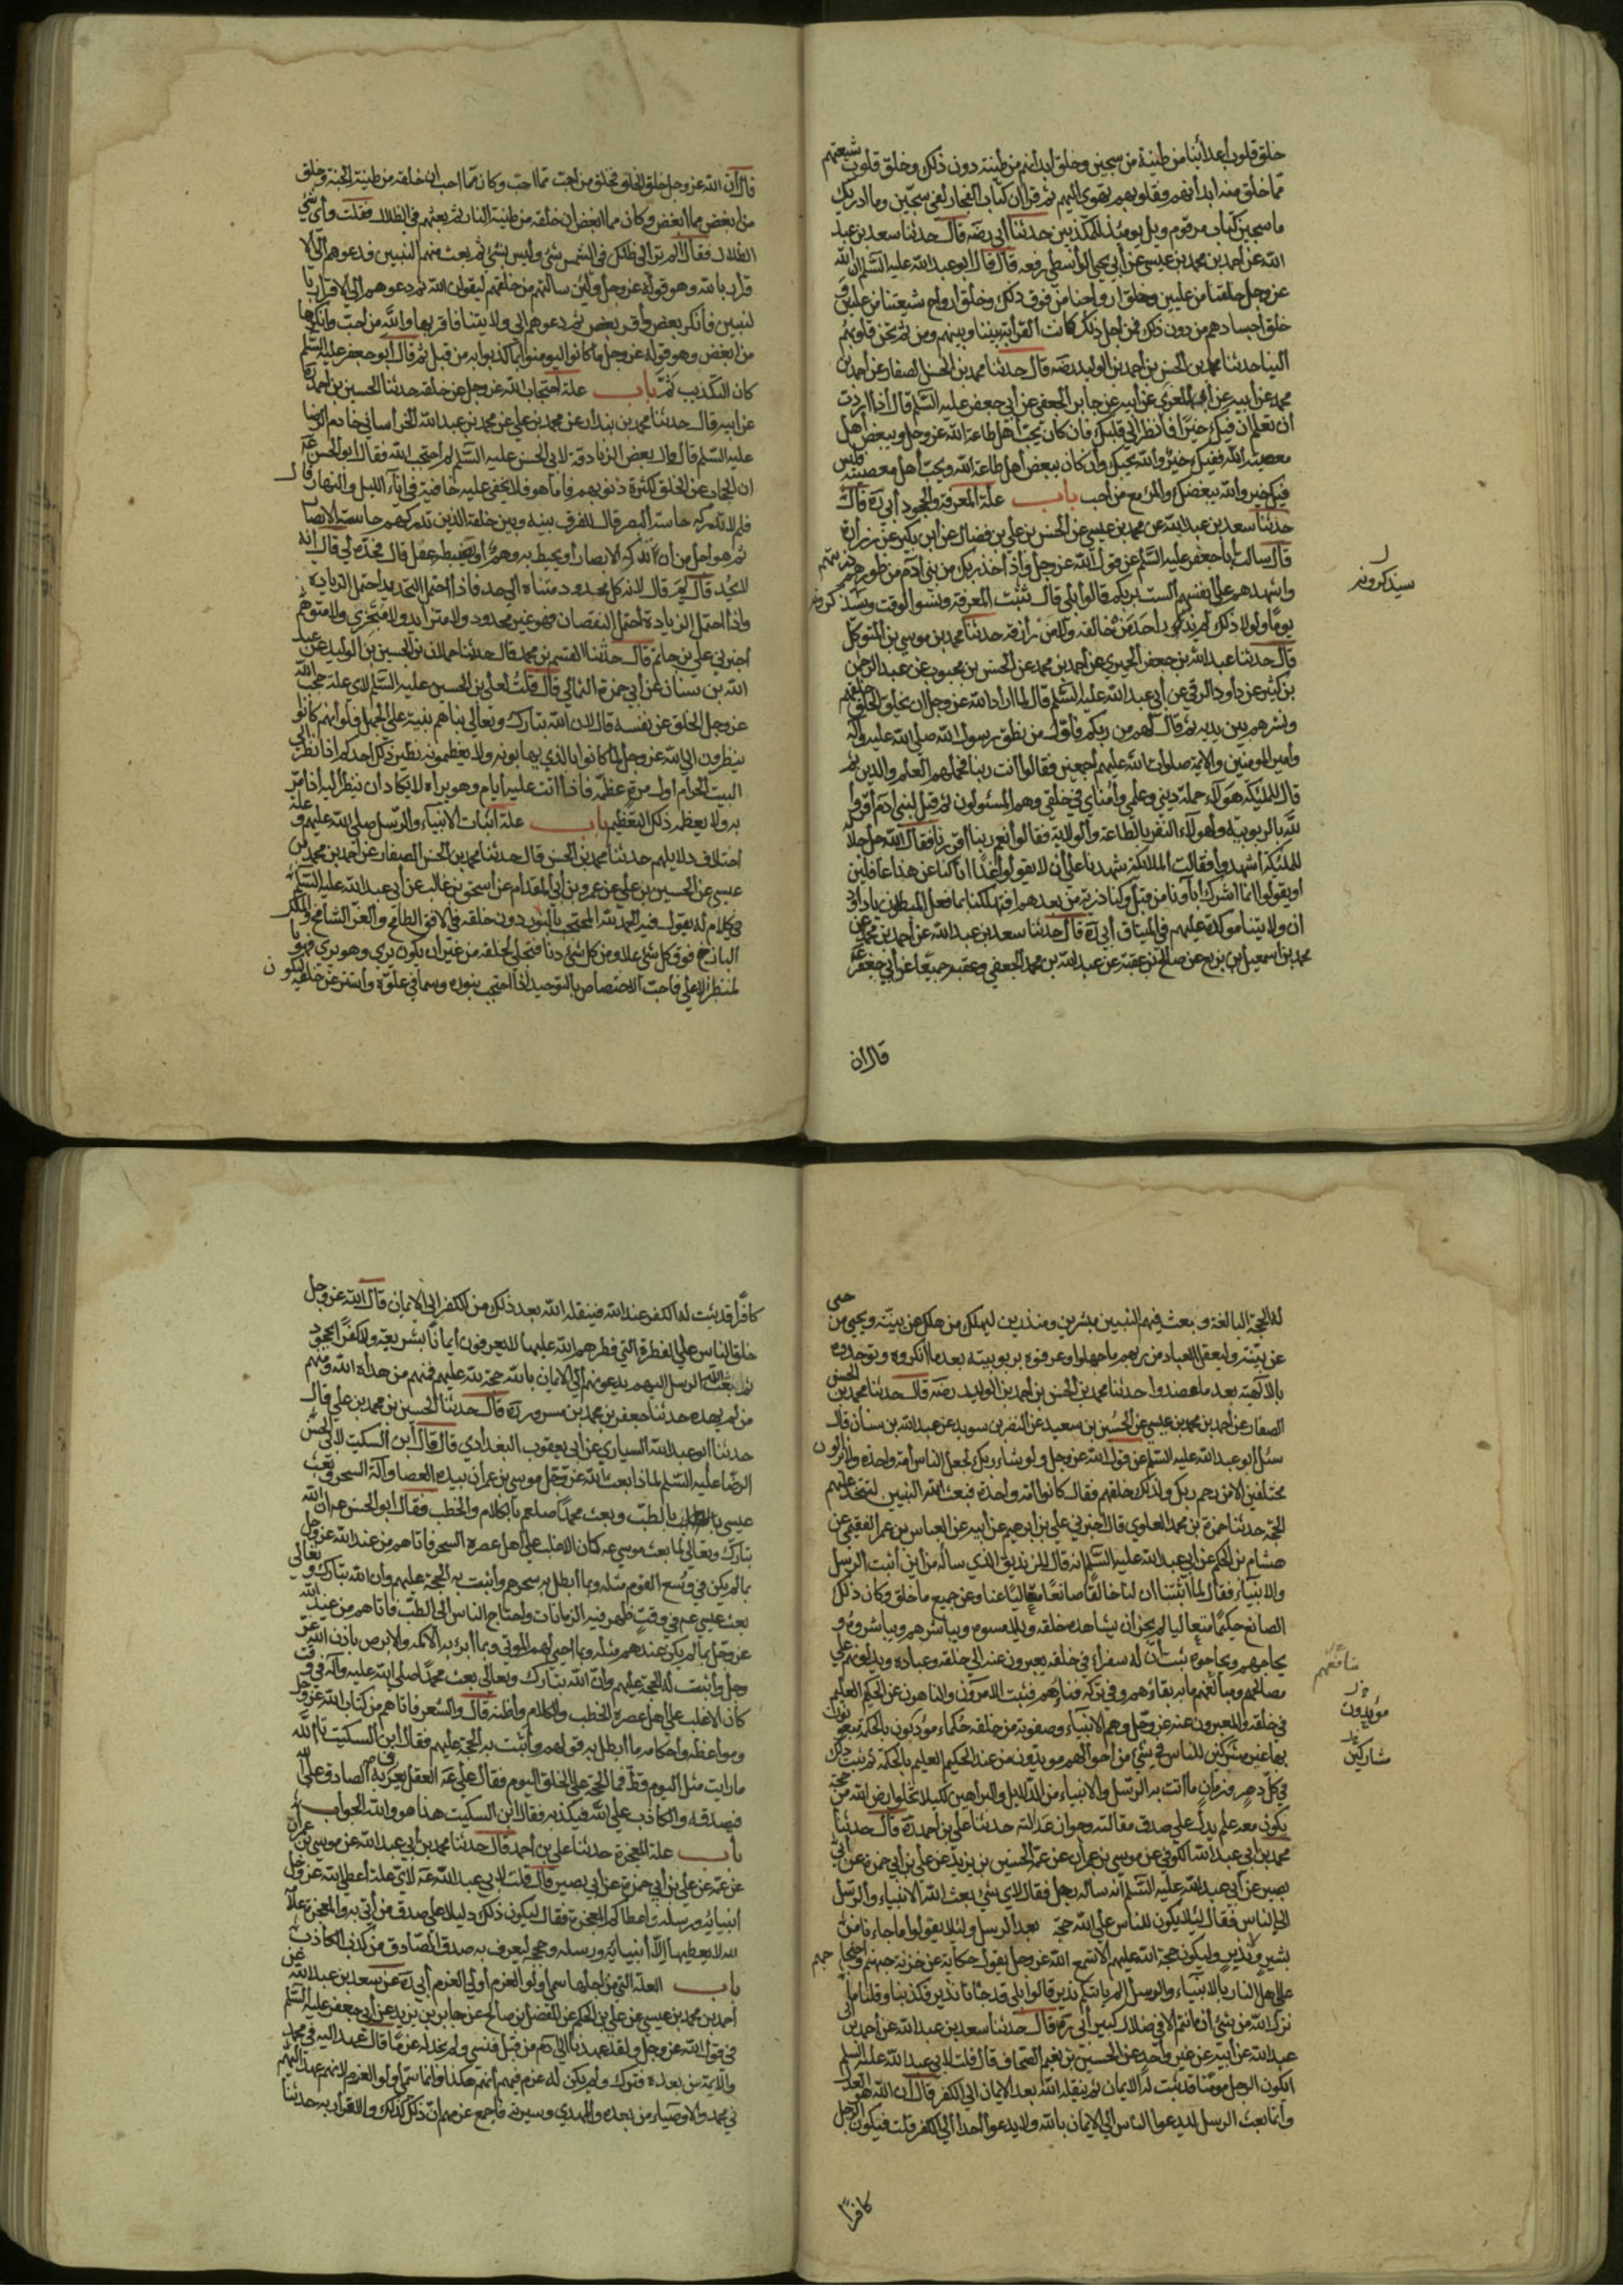 خلق قلوب أعدائنا من طينة من سجين وخلق أبدانهم من طينة دون ذلك وخلق قلوب شيعتهم
مما خلق منه أبدانهم وقلوبهم تهوى إليهم ثم قرأ إن كتاب الفجار لفي سجين وما ادريك
ما سجين كتاب مرقوم ويل يومئذ للمكذبين حدثنا أبي رضه قال حدثنا سعد بن عبد
الله عن أحمد بن محمد بن عيسى عن أبي يحيى الواسطي رفعه قال قال أبو عبد الله عليه السلم ان الله
عز وجل خلقنا من عليين وخلق أرواحنا من فوق ذلك وخلق أرواح شيعتنا من عليين و
خلق أجسادهم من دون ذلك فمن أجل ذلك كانت القرابة بيننا وبينهم ومن ثم تحن قلوبهم
إلينا حدثنا محمد بن الحسن بن أحمد بن الوليد رضه قال حدثنا محمد بن الحسن الصفار عن أحمد بن
محمد عن أبيه عن العزرمي عن أبيه عن جابر الجعفي عن أبي جعفر عليه السلم قال إذا أردت
أن تعلم أن فيك خيرا فانظر إلى قلبك فان كان يحب أهل طاعة الله عز وجل ويبغض أهل
معصية الله ففيك خير والله يحبك وإن كان يبغض أهل طاعة الله ويحب أهل معصيته فليس
فيك خير والله يبغضك والمرء مع من أحب باب علة المعرفة والجحود أبي ره قال
حدثنا سعد بن عبد الله عن محمد بن عيسى عن الحسن بن علي بن فضال عن ابن بكير عن زرارة
قال سألت أبا جعفر عليه السلم عن قول الله عز وجل وإذ أخذ ربك من بني آدم من ظهورهم ذريتهم
وأشهدهم على أنفسهم ألست بربكم قالوا بلى قال ثبتت المعرفة ونسوا الوقت وسيذكرونه
يوما ولولا ذلك لم يدر أحد من خالقه ولا من رازقه حدثنا محمد بن موسى بن المتوكل
قال حدثنا عبد الله بن جعفر الحميري عن أحمد بن محمد عن الحسن بن محبوب عن عبد الرحمن
بن كثير عن داود الرقي عن أبي عبد الله عليه السلم قال لما أراد الله عز وجل ان يخلق الخلق خلقهم
ونشرهم بين يديه ثم قال لهم من ربكم فأول من نطق رسول الله صلى الله عليه وآله
وأمير المومنين والأئمة صلوات الله عليهم أجمعين فقالوا أنت ربنا فحملهم العلم والدين ثم
قال للملئكة هؤلاء حملة ديني وعلمي وأمنائي في خلقي وهم المسئولون ثم قيل لبني آدم أقروا
لله بالربوبية ولهؤلاء النفر بالطاعة والولاية فقالوا نعم ربنا أقررنا فقال الله جل جلاله
للملئكة اشهدوا فقالت الملائكة شهدنا على أن لا يقولوا غدا إنا كنا عن هذا غافلين
أو يقولوا إنما أشرك آباؤنا من قبل وكنا ذرية من بعدهم افتهلكنا بما فعل المبطلون يا داود
ان ولايتنا مؤكدة عليهم في الميثاق أبي ره قال حدثنا سعد بن عبد الله عن أحمد بن محمد عن
محمد بن اسمعيل بن بزيع عن صالح بن عقبة عن عبد الله بن محمد الجعفي وعقبة جميعا عن أبي جعفر عه
قال ان
سيذكرونه
قال ان الله عز وجل خلق الخلق فخلق من أحب مما احب وكان مما احب ان خلقه من طينة الجنة وخلق
من ابغض مما أبغض وكان مما ابغض ان خلقه من طينة النار ثم بعثهم في الظلال فقلت وأي شئ
الظلال فقال ألم تر إلى ظلك في الشمس شئ وليس بشئ ثم بعث منهم النبيين فدعوهم إلى الا
قرار بالله وهو قوله عز وجل ولئن سألتهم من خلقهم ليقولن الله ثم دعوهم إلى الاقرار با
لنبيين فأنكر بعض وأقر بعض ثم دعوهم إلى ولايتنا فاقر بها والله من احب وأنكرها
من ابغض وهو قوله عز وجل ما كانوا ليومنوا بما كذبوا به من قبل ثم قال أبو جعفر عليه السلم
كان التكذيب ثم باب علة احتجاب الله عز وجل عن خلقه حدثنا الحسين بن أحمد ره
عن ابيه قال حدثنا محمد بن بندار عن محمد بن علي عن محمد بن عبد الله الخراساني خادم الرضا
عليه السلم قال قال بعض الزنادقة لأبي الحسن عليه السلم لم احتجب الله فقال أبو الحسن عه
ان الحجاب عن الخلق لكثرة ذنوبهم فأما هو فلا يخفى عليه خافية في اناء الليل والنهار قال
فلم لا تدركه حاسة البصر قال للفرق بينه وبين خلقه الذين تدركهم حاسة الابصار
ثم هو أجل من أن تدركه الابصار أو يحيط به وهم أو يضبطه عقل قال فحده لي قال انه
لا يحد قال لم قال لأنه كل محدود متناه إلى حد فإذا احتمل التحديد احتمل الزيادة
وإذا احتمل الزيادة احتمل النقصان فهو غير محدود ولا متزايد ولا متجزي ولا متوهم
أخبرني علي بن حاتم قال حدثنا القسم بن محمد قال حدثنا حمدان بن الحسين بن الوليد عن عبد
الله بن سنان عن أبي حمزة الثمالي قال قلت لعلي بن الحسين عليه السلم لأي علة حجب الله
عز وجل الخلق عن نفسه قال لان الله تبارك وتعالى بناهم بنية على الجهل فلو أنهم كانوا
ينظرون إلى الله عز وجل لما كانوا بالذي يهابونه ولا يعظمونه نظير ذلك أحدكم إذا نظر إلى
البيت الحرام أول مرة عظمه فإذا أتت عليه أيام وهو يراه لا يكاد ان ينظر إليه إذا مر
به ولا يعظمه ذلك التعظيم باب علة اثبات الأنبياء والرسل صلى الله عليهم وعلة
اختلاف دلايلهم حدثنا محمد بن الحسن قال حدثنا محمد بن الحسن الصفار عن أحمد بن محمد بن
عيسى عن الحسين بن علي عن عمرو بن أبي المقدام عن اسحق بن غالب عن أبي عبد الله عليه السلم
في كلام له يقول فيه الحمد لله المحتجب بالنور دون خلقه في الأفق الطامح والعز الشامخ والملك
الباذخ فوق كل شئ علا ومن كل شئ دنا فتجلى لخلقه من غير أن يكون يرى وهو يرى وهو با
لمنظر الأعلى فأحب الاختصاص بالتوحيد إذا احتجب بنوره وسما في علوه واستتر عن خلقه ليكون
له الحجة البالغة وبعث فيهم النبيين مبشرين ومنذرين ليهلك من هلك عن بينة ويحيى من حى
عن بينة وليعقل العباد من ربهم ما جهلوا وعرفوه بربوبيته بعد ما انكروه ويوحدوه
بالالهية بعد ما عضدوا حدثنا محمد بن الحسن بن أحمد بن الوليد رضه قال حدثنا محمد بن الحسن
الصفار عن أحمد بن محمد بن عيسى عن الحسين بن سعيد عن النضر بن سويد عن عبد الله بن سنان قال
سئل أبو عبد الله عليه السلم عن قول الله عز وجل ولو شاء ربك لجعل الناس أمة واحدة ولا يزالون
مختلفين الا من رحم ربك ولذلك خلقهم فقال كانوا أمة واحدة فبعث الله النبيين ليتخذ عليهم
الحجة حدثنا حمزة بن محمد العلوي قال أخبرني علي بن إبرهيم عن أبيه عن العباس بن عمر الفقيمي عن
هشام بن الحكم عن أبي عبد الله عليه السلم انه قال للزنديق الذي سأله من أين أثبت الرسل
والأنبياء فقال لما أثبتنا ان لنا خالقا صانعا متعاليا عنا وعن جميع ما خلق وكان ذلك
الصانع حكيما متعاليا لم يجز أن يشاهده خلقه ولا يلامسوه ويباشرهم ويباشروه و
يحاجهم ويحاجوه ثبت أن له سفراء في خلقه يعبرون عنه إلى خلقه وعباده ويدلونهم على
مصالحهم ومنافعهم وما به بقاؤهم وفي تركه فناؤهم فثبت الآمرون والناهون عن الحكيم العليم
في خلقه والمعبرون عنه عز وجل وهم الأنبياء وصفوته من خلقه حكماء مؤدبون بالحكمة مبعوثون
بها غير مشاركين للناس في شئ من أحوالهم مويدون من عند الحكيم العليم بالحكمة ثم ثبت ذلك
في كل دهر وزمان ما أتت به الرسل والأنبياء من الدلايل والبراهين لكيلا تخلو أرض الله من حجة
يكون معه علم يدل على صدق مقالته وجواز عدالته حدثنا علي بن أحمد ره قال حدثنا
محمد بن أبي عبد الله الكوفي عن موسى بن عمران عن عمه الحسين بن يزيد عن علي بن أبي حمزة عن أبي
بصير عن أبي عبد الله عليه السلم انه سأله رجل فقال لأي شئ بعث الله الأنبياء والرسل
إلى الناس فقال لئلا يكون للناس على الله حجة بعد الرسل ولئلا يقولوا ما جاءنا من
بشير ولا نذير وليكون حجة الله عليهم الا تسمع الله عز وجل يقول حكاية عن خزنة جهنم واحتجاجهم
على اهل النار بالأنبياء والرسل ألم يأتكم نذير قالوا بلى قد جاءنا نذير فكذبنا وقلنا ما
نزل الله من شئ ان أنتم الا في ضلال كبير أبي ره قال حدثنا سعد بن عبد الله عن أحمد بن أبي
عبد الله عن أبيه عن غير واحد عن الحسين بن نعيم الصحاف قال قلت لأبي عبد الله عليه السلم
ايكون الرجل مومنا قد ثبت له الايمان ثم ينقله الله بعد الايمان إلى الكفر قال ان الله هو العدل
وإنما بعث الرسل ليدعوا الناس إلى الايمان بالله ولا يدعوا أحدا إلى الكفر قلت فيكون الرجل
كافرا
منافعهم
مؤيدون
مشاركين
كافرا قد ثبت له الكفر عند الله فينقله الله بعد ذلك من الكفر إلى الايمان قال الله عز وجل
خلق الناس على الفطرة التي فطرهم الله عليها لا يعرفون أيمانا بشريعة ولا كفرا بجحود
ثم بعث الله الرسل إليهم يدعونهم إلى الايمان بالله حجة لله عليهم فمنهم من هداه الله ومنهم
من لم يهده حدثنا جعفر بن محمد بن مسرور ره قال حدثنا الحسين بن محمد بن علي قال
حدثنا أبو عبد الله السياري عن أبي يعقوب البغدادي قال قال ابن السكيت لأبي الحسن
الرضا عليه السلم لماذا بعث الله عز وجل موسى بن عمران بيده العصا وآلة السحر وبعث
عيسى بالطب وبعث محمدا صلعم بالكلام والخطب فقال أبو الحسن عه ان الله
تبارك وتعالى لما بعث موسى عه كان الأغلب على أهل عصره السحر فأتاهم من عند الله عز وجل
بما لم يكن في وسع القوم مثله وبما أبطل به سحرهم وأثبت به الحجة عليهم وان الله تبارك وتعالى
بعث عيسى عه في وقت ظهر فيه الزمانات واحتاج الناس إلى الطب فأتاهم من عند الله
عز وجل بما لم يكن عندهم مثله وبما أحيى لهم الموتى وبما أبرء به الأكمه والأبرص باذن الله عز
وجل وأثبت له الحجة عليهم وان الله تبارك وتعالى بعث محمدا صلى الله عليه وآله في وقت
كان الأغلب على أهل عصره الخطب والكلام وأظنه قال والشعر فأتاهم من كتاب الله عز وجل
ومواعظه وأحكامه ما أبطل به قولهم وأثبت به الحجة عليهم فقال ابن السكيت تالله
ما رايت مثل اليوم قط فما الحجة على الخلق اليوم فقال عليه عه العقل يعرف به الصادق على الله
فيصدقه والكاذب على الله فيكذبه فقال ابن السكيت هذا هو والله الجواب
باب علة المعجزة حدثنا علي بن أحمد قال حدثنا محمد بن أبي عبد الله عن موسى بن عمران
عن عمه عن علي بن أبي حمزة عن أبي بصير قال قلت لأبي عبد الله عه لأي علة أعطى الله عز وجل
أنبيائه ورسله واعطاكم المعجزة فقال ليكون ذلك دليلا على صدق من أتى به والمعجزة علامة
لله لا يعطيها إلا أنبيائه ورسله وحججه ليعرف به صدق الصادق من كذب الكاذب
باب العلة التي من أجلها سمي أولو العزم أولي العزم أبي ره عن سعد بن عبد الله عن
أحمد بن محمد بن عيسى عن علي بن الحكم عن المفضل بن صالح عن جابر بن يزيد عن أبي جعفر عليه السلم
في قول الله عز وجل ولقد عهدنا إلى آدم من قبل فنسي ولم نجد له عزما قال عهد إليه في محمد
والأئمة من بعده فترك ولم يكن له عزم فيهم أنهم هكذا وإنما سمي أولو العزم لأنهم عهد إليهم
في محمد والأوصياء من بعده والمهدي وسيرته فأجمع عزمهم ان ذلك كذلك والاقرار به حدثنا